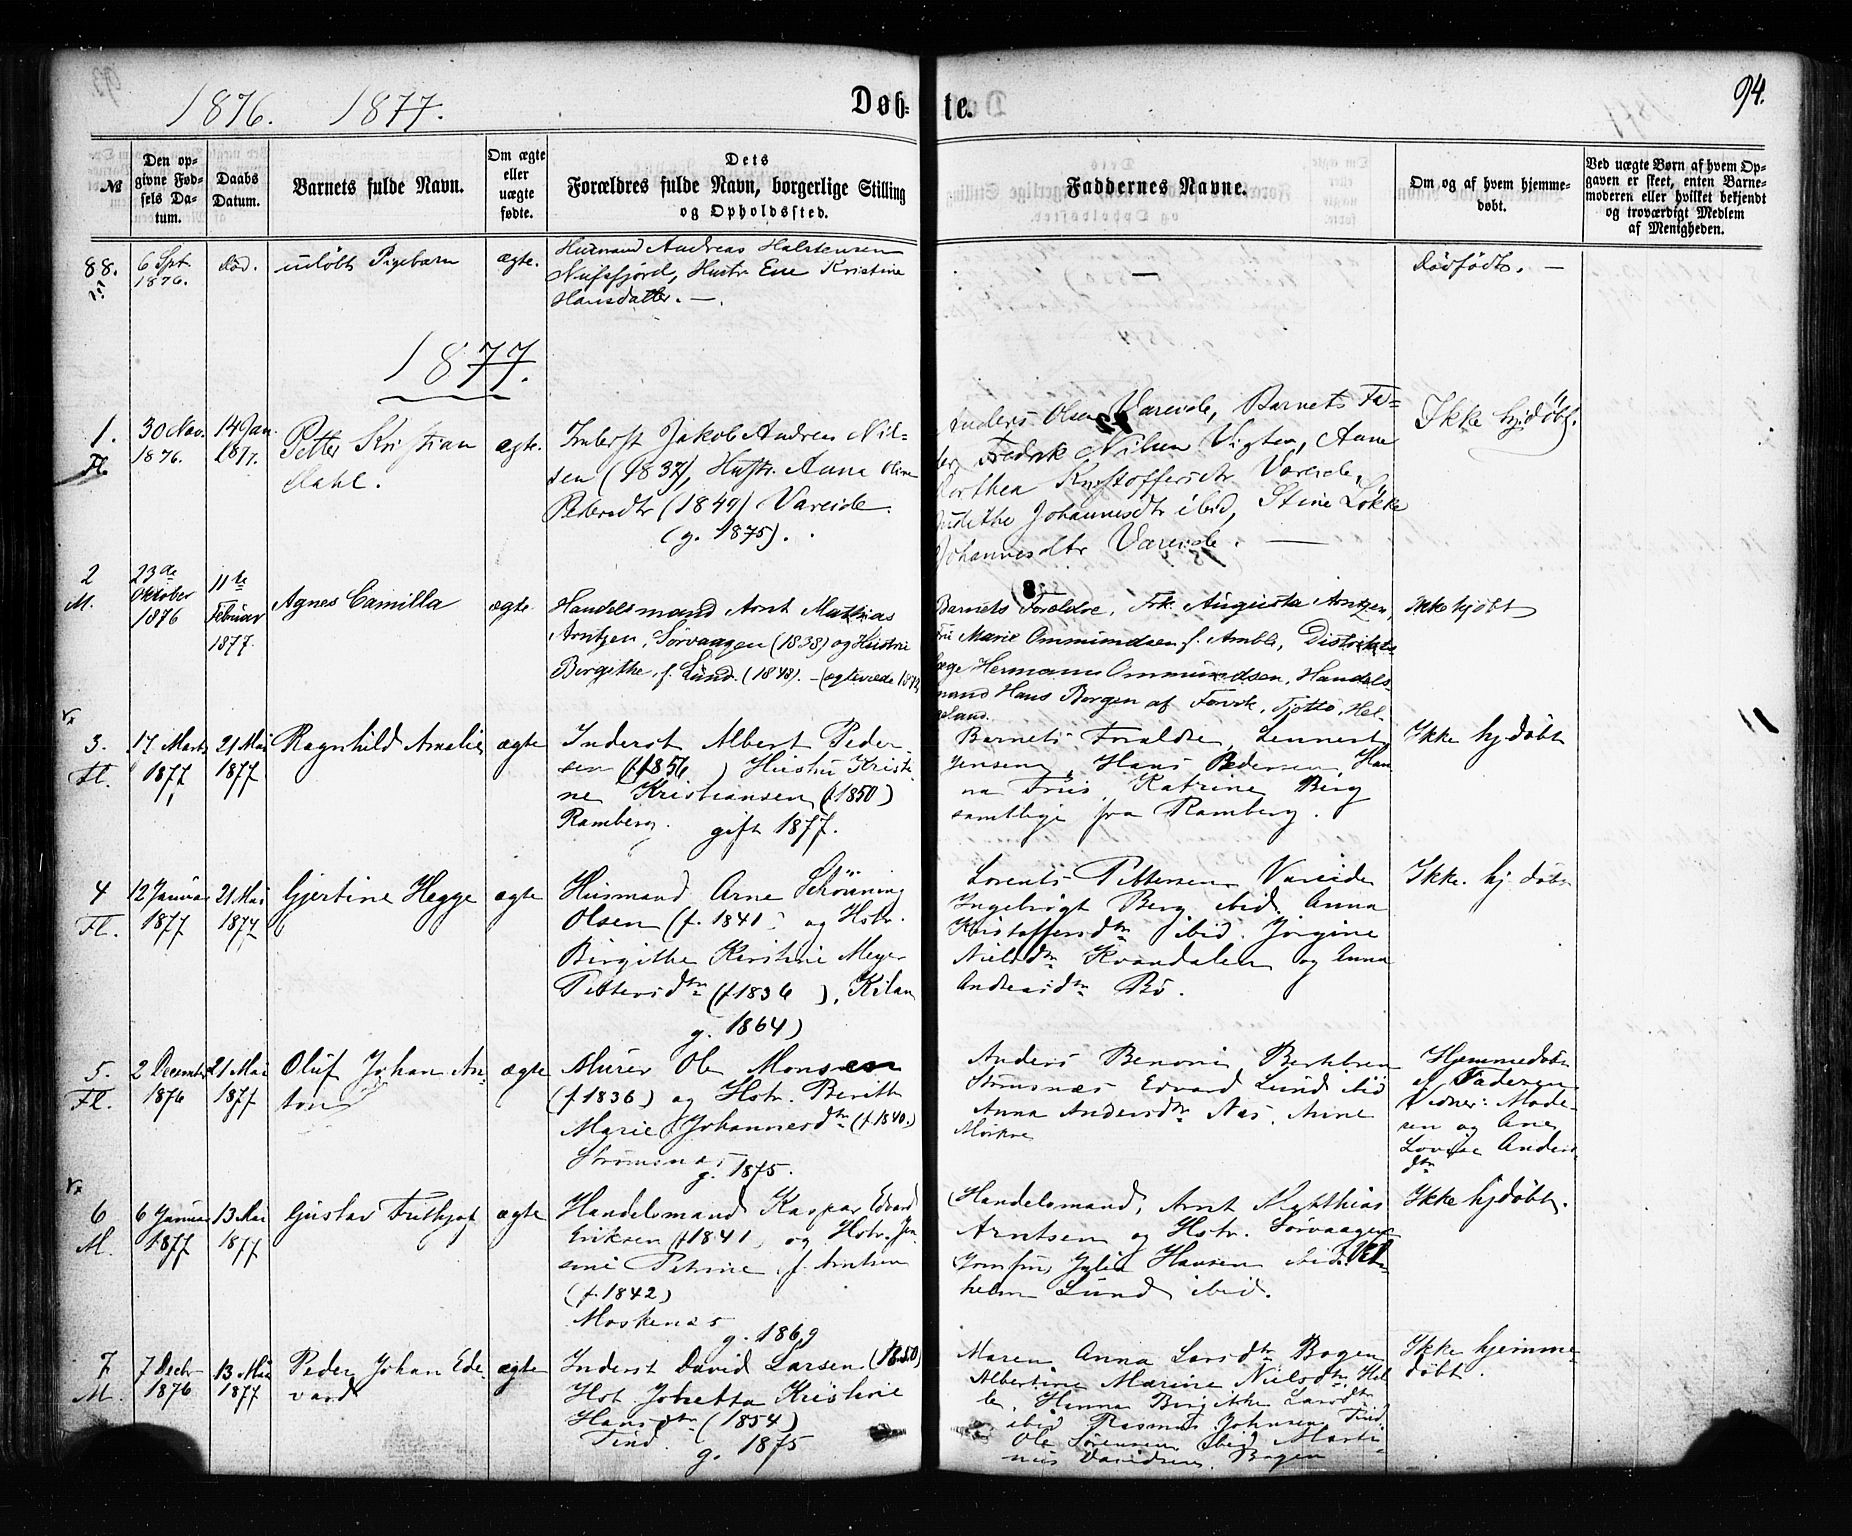 1876. 1877. Døb- te. 94.
№
Den op-
givne Fød-
sels Da-
tum.
Daabs
Datum.
Barnets fulde Navn.
Om ægte
eller
uægte
fødte.
Dets
Forældres fulde Navn, borgerlige Stilling
og Opholdssted.
Faddernes Navne.
Om og af hvem hjemme-
døbt.
Ved uægte Børn af hvem Op-
gaven er skeet, enten Barne-
moderen eller hvilket bekjendt
og troværdigt Medlem
af Menigheden.
88.
6 Spt.
1876.
død.
udøbt Pigebarn
ægte.
Husmand Andreas Halstensen
Nusfjord, Hustr. Ene Kristine
Hansdatter. —
—
Dødfødt. —
1877.
1.
Fl.
30 Nov.
1876.
14 Jan.
1877.
Petter Kristian
Dahl.
ægte.
Inderst Jakob Andreas Nil-
sen (1837), Hustr. Anna Oline
Pedersdtr (1849) Vareide.
(g. 1875).
Anders Olsen Vareide, Barnets Fa-
der, Fredrik Nilsen Vigten, Anne
Dorthea Kristoffersdtr Vareide,
Judithe Johannesdtr ibid, Stine Løkke
Johannesdtr Vareide. —
Ikke hjdøbt.
2
M.
23de
Oktober
1876
11te
Februar
1877.
Agnes Camilla
ægte.
Handelsmand Arnt Mathias
Arntzen, Sørvaagen (1838) og Hustru
Bergithe f. Lund. (1848). — (ægteviede 1873)
Barnets Forældre, Frk. Augusta Arntzen,
Fru Marie Ommundsen f. Amble, Distrikts-
læge Hermann Ommundsen, Handels-
mand Hans Borgen af Forvik, Tjøtto, Hel-
geland.
Ikke hjdøbt
3.
Fl.
17 Marts
1877
21 Mai
1877
Ragnhild Amalie
ægte
Inderst Albert Peder-
sen (f. 1856) Hustru Kristi-
ne Kristiansen (f. 1850)
Ramberg. gift 1877.
Barnets Forældre, Lennert
Jensen, Hans Pedersen, Han-
na Friis, Katrine Berg
samtlige fra Ramberg.
Ikke hjdøbt
4
Fl.
12 Januar
1877
21 Mai
1877
Gjertine Hegge
ægte
Husmand Arne Schönning
Olsen (f. 1841) og Hstr.
Birgithe Kirstine Meyer
Pettersdtr (f. 1836), Kilan
g. 1864)
Lorents Pettersen Vareide
Ingebrigt Berg ibid. Anna
Kristoffersdtr ibid. Jørgine
Nielsdtr Kvandalen og Anna
Andreasdtr Bø.
Ikke hj. døbt
5.
Fl.
2 December
1876
21 Mai
1877
Oluf Johan An-
ton
ægte
Murer Ole Monsen
(f. 1836) og Hstr. Berith
Marie Johannesdtr (f. 1840.)
Strømsnæs g. 1875.
Anders Benoni Bertelsen
Strømsnæs Edvard Lund ibid
Anna Andersdtr Næs, Anne
Mörkve
Hjemmedøbt
af Faderen
Vidner: Made-
sen og Ane
Lovise Anders-
dtr
6
M.
6 Januar
1877
13 Mai
1877
Gustav Frithjof
ægte
Handelsmand Kaspar Edvard
Eriksen (f. 1841) og Hstr. Jen-
sine Petrine f. Arntsen
(f. 1842)
Moskenæs g. 1869
Handelsmand, Arnt Matthias
Arntsen og Hstr. Sørvaagen
Jomfru Julia Hansen ibid. Vil-
helm Lund ibid.
Ikke hjdøbt.
7.
M.
7 Decbr
1876
13 Mai
1877
Peder Johan Ede-
vard
ægte
Inderst David Larsen (1850)
Hst Johetta Kristine
Hansdtr (1854)
Tind. g. 1875
Maren Anna Larsdtr Bogen
Albertine Marine Nielsdtr Hel-
le, Hanna Birgithe Larsdtr
ibid Rasmus Johnsen Tind.
Ole Sørensen ibid Marti-
nus Davidsen, Bogen
Ikke hjemme-
døbt.